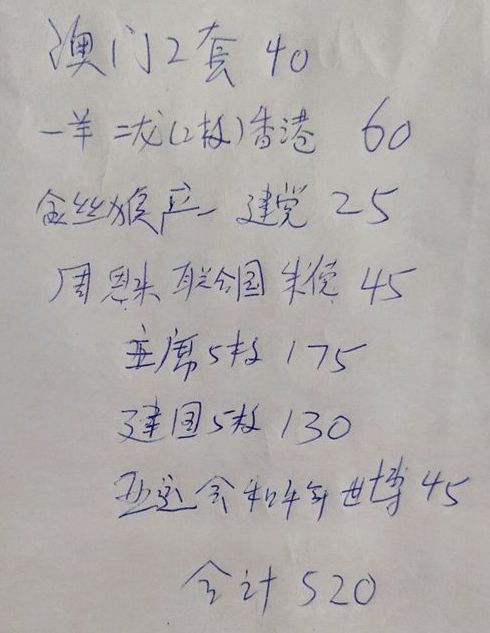 澳门2套 40
一羊二龙(2枚)香港 60
金丝猴 建党 25
周恩来 联合国 朱德 45
主席5枚 175
建国5枚 130
亚运会和平年世博 45
合计 520